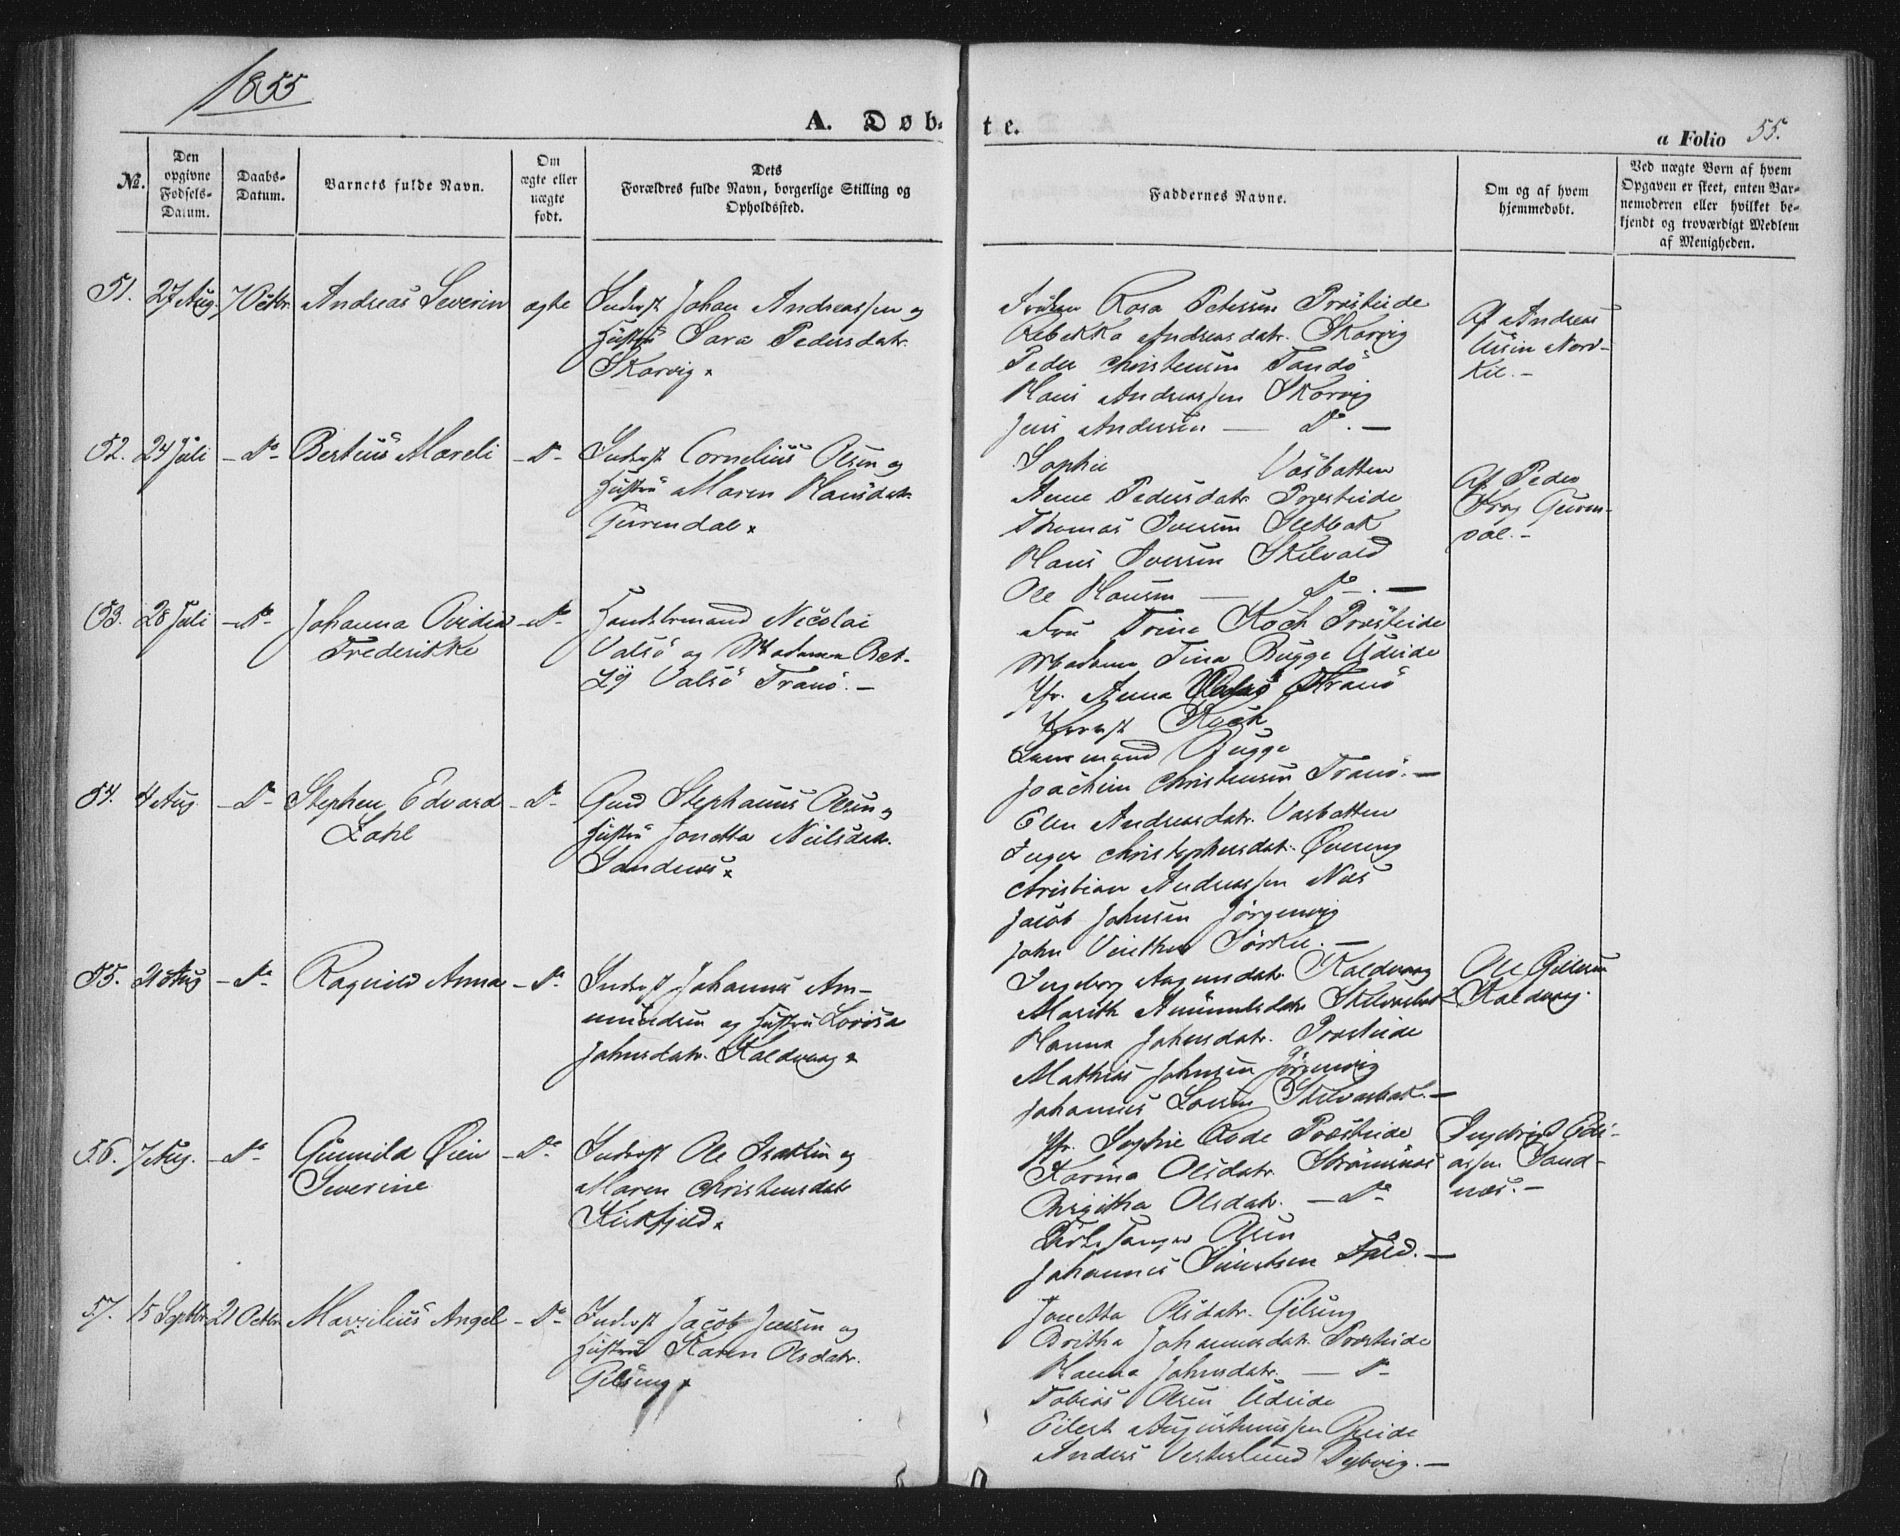 1855
A. Døb-
te.
a Folio 55.
No.
Den opgivne Fødsels-Datum.
Daabs-Datum.
Barnets fulde Navn.
Om ægte eller uægte født.
Dets
Forældres fulde Navn, borgerlige Stilling og
Opholdssted.
Faddernes Navne.
Om og af hvem
hjemmedøbt.
Ved uægte Børn af hvem
Opgaven er skeet, enten Bar-
nemoderen eller hvilket be-
kjendt og troværdigt Medlem
af Menigheden.
51. 27 Aug. 7 Octbr. Andreas Severin ægte Inderst Johan Andreassen og
Hustru Sara Pedersdatr.
Skarvig
Rosa Petersen Præsteide
Rebekka Andreasdatr. Skarvig
Peder Christensen Tandø
Hans Andreassen Skarvig
Jens Andersen — Do. —
Af Andreas
Nord-
kil. —
52. 24 Juli — Do — Berteus Mareli — Do — Inderst Cornelius Olsen og
Hustru Maren Hansdatr.
Gurendal
Sophie Vasbatten
Anne Pedersdatr. Præsteide
Thomas Iversen Sletbak
Hans Iversen Skilvald
Ole Hansen — Do. —
Af Peder
Krog Guren-
dal. —
53. 28 Juli — Do — Johanna Ovidia — Do — Handelsmand Nicolai
Frederikke
Valsø og Madame Bet-
zy Valsø Tranø. —
Fru Trine Koch Præsteide
Madame Tina Bugge Udeide
Jfr. Anna Valsø Tranø
Koch
Lensmand Bugge
Joachim Christensen Tranø. —
54. 4 Aug. — Do — Stephen Edvard — Do — Gmd Stephanus Olsen og
Zahl
Hustru Jonetta Nielsdatr.
Sandnes
Elen Andreasdatr. Vasbatten
Inger Christophersdatr. Øvereng
Christian Andreassen Næs
Jacob Johnsen Jørgenvig
John
55. 20 Aug — Do — Ragnild Anna — Do — Inderst Johannes Am-
mundsen og Hustru Lovisa
Johnsdatr. Kaldvaag
Ingeborg Kaldvaag
Marith Ammundsdatr.
Hanna Johnsdatr. Præsteide
Mathias Johnsen Jørgenvig
Johannes Larsen Skilvasbak. —
Ole
Kaldvaag.
56. 7 Aug. — Do — Gunnild Øien — Do — Inderst Ole Isaksen og
Severine
Maren Christensdatr.
Kirkfjeld
Jfr. Sophie Rode Præsteide
Karina Olsdatr. Strømsnæs
Birgitha Olsdatr. — Do —
Kirkesanger Olsen
Johannes Sivertsen Fjeld. —
Ingebrigt Edi-
assen Sand-
næs. —
57. 15 Septbr 21 Octbr Marzelius Angel — Do — Inderst Jacob Jensen og
Hustru Karen Olsdatr.
Gilseng
Jonetta Olsdatr. Gilseng
Britha Johannesdatr. Præsteide
Hanna Johnsdatr. — Do —
Tobias Olsen Udeide
Eilert Augustinussen
Anders Vesterlund Dybvig. —